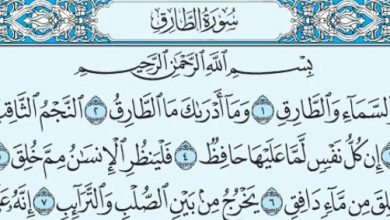 سُورَةُ الطَّارِقِ
بِسْمِ اللَّهِ الرَّحْمَٰنِ الرَّحِيمِ
السَّمَآءِ وَالطَّارِقِ ١ وَمَآ أَدْرَىٰكَ مَا الطَّارِقُ ٢ النَّجْمُ الثَّاقِ
٣ إِن كُلُّ نَفْسٍ لَّمَّا عَلَيْهَا حَافِظٌ ٤ فَلْيَنظُرِ الْإِنسَٰنُ مِمَّ خُلِقَ
لِقَ مِن مَّآءٍ دَافِقٍ ٦ يَخْرُجُ مِنۢ بَيْنِ الصُّلْبِ وَالتَّرَآئِبِ ٧ إِنَّهُۥ عَ